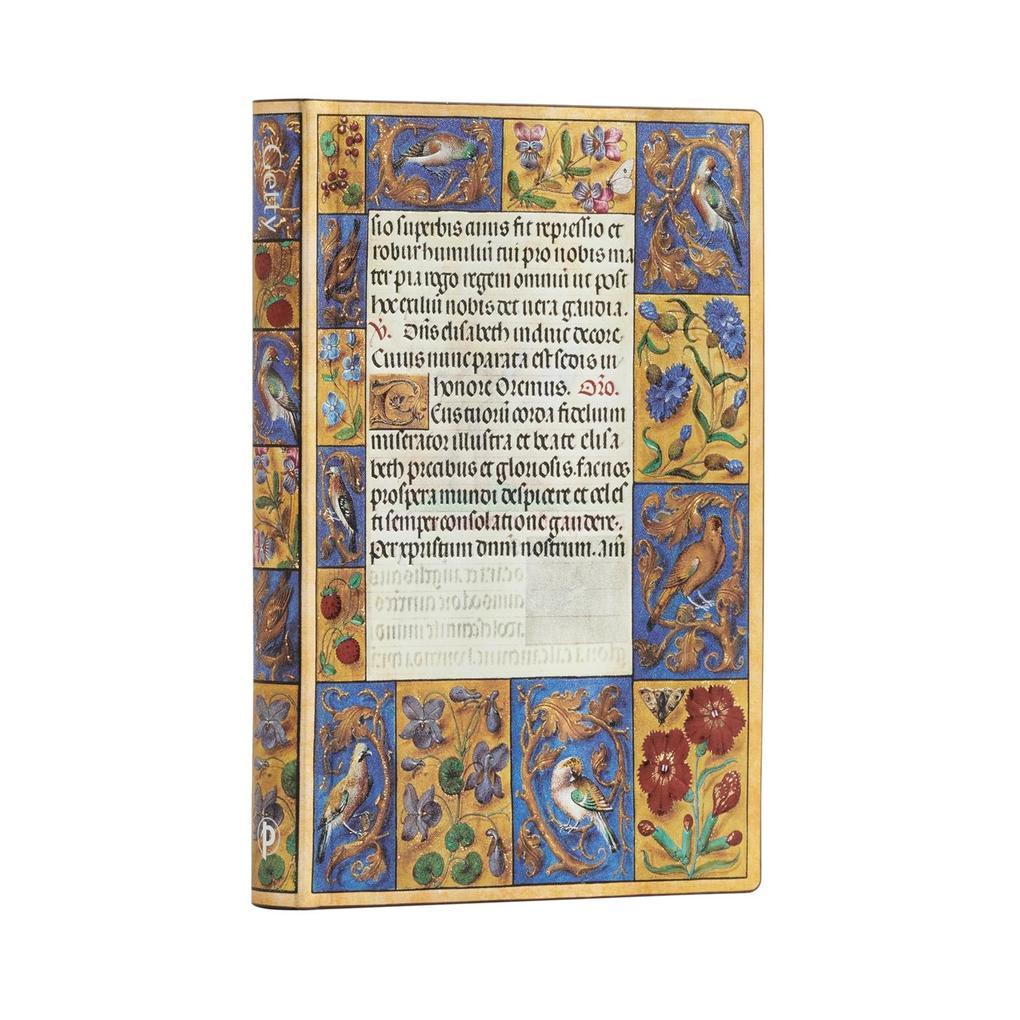 Getty
sio superbis auius fit repressio et
robur humiliū tui pro nobis ma
ter pia rogo regem omniū ut post
hoc exiliū nobis det uera gaudia.
V. Dn̄s elisabeth induit decore.
Cuius nunc parata est sedis in
honore Oremus. Orō.
Deus tuorū corda fidelium
miserator illustra et beate elisa
beth precibus et gloriosis. fac nos
prospera mundi despicere et celes
ti semper consolatione gaudere.
Per xpristum dnm̄ nostrum. am̄
p